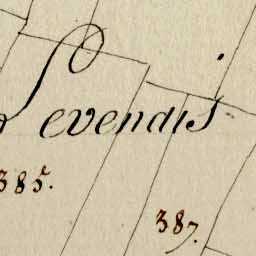 Sevendis
385.
387.